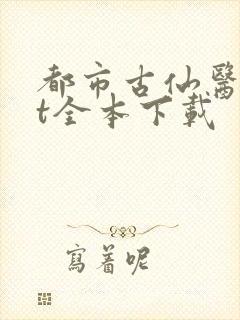 都市古仙醫
t全本下載
寫着呢